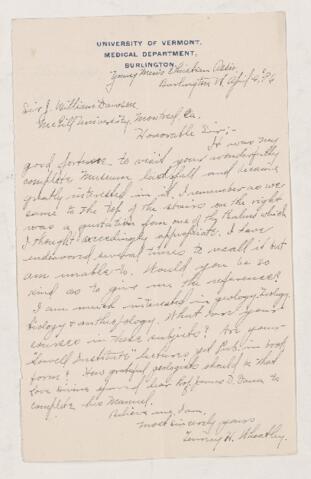 UNIVERSITY OF VERMONT,
MEDICAL DEPARTMENT,
BURLINGTON.
Young Men's Christian Assn
Burlington Vt April 4,
Sir J. William Dawson
McGill University, Montreal, Ca.
Honorable Sir;-
It was my
good fortune to visit your wonderfully
complete Museum last fall and became
greatly interested in it. I remember as we
came to the top of the stairs on the right
was a quotation from one of the which
I thought exceedingly appropriate. I have
endeavored several times to recall it but
am unable to. Would you be so
kind as to give me the reference?
I am much interested in geology, zoology,
biology & anthropology. What are your
courses in these subjects? Are your
"Lowell Institute" lectures yet put in book
form? How grateful geologists should be that
love divine spared dear Prof James D. Dana to
complete his Manual.
Believe me, I am,
most sincerely yours
H. Wheatley.